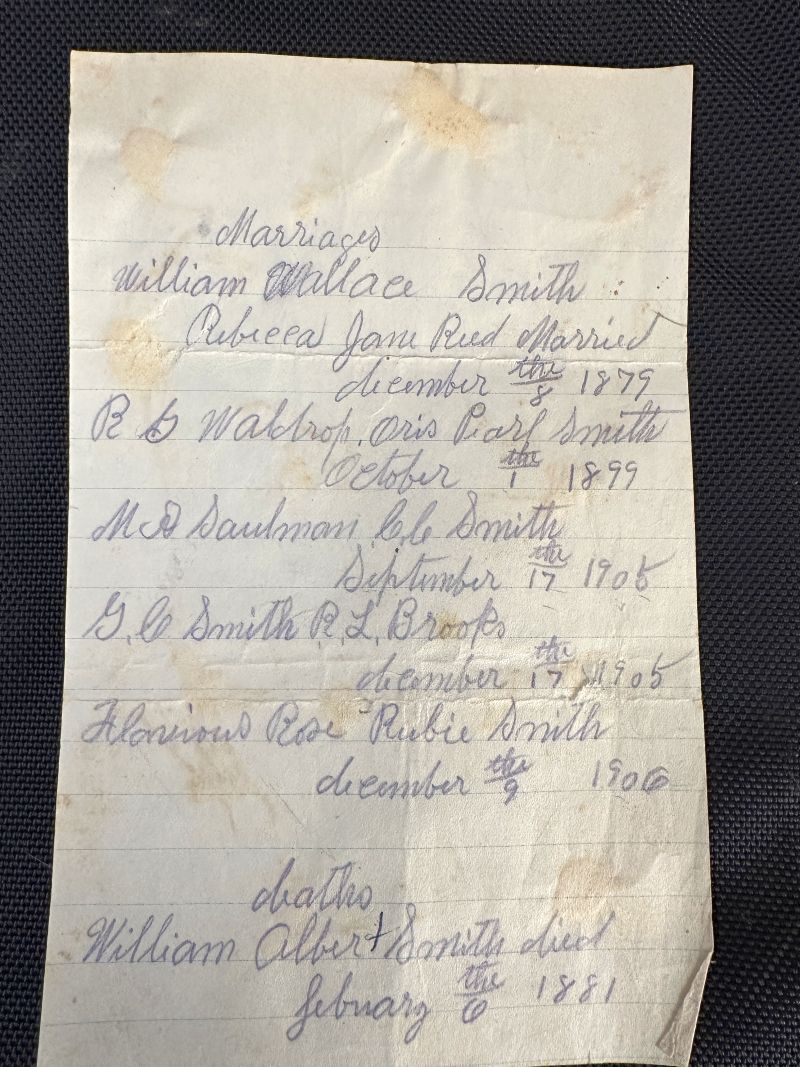 Marriages
William Wallace Smith
Rebecca Jane Reed Married
december the 8 1879
R G Waldrop, Oris Pearl Smith
October the 1 1899
M A Saulman, C, C Smith
September the 17 1905
G, C Smith R, L, Brooks
december the 17 1905
Rose Rubie Smith
december the 9 1906
deaths
William Albert Smith died
febuary the 6 1881